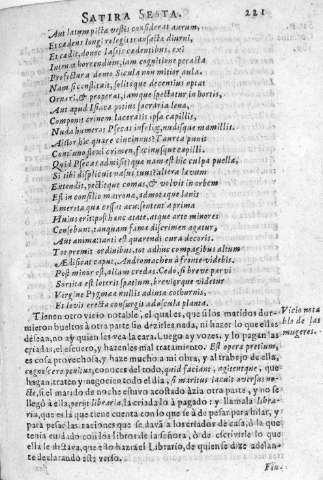 SATIRA SESTA. 221
Aut latum pictæ vestis considerat aurum,
Et cædens longi relegit transacta diurni,
Et cædit, donec lassis cædentibus, exi
Intonet horrendum, iam cognitione peracta
Præfectura domo Sicula non mitior aula.
Nam si constituit, solitoque decentius optat
Ornari, & properat, iamque spectatur in hortis,
Aut apud Isiacæ potius sacraria lenæ,
Componit crinem laceratis ipsa capillis,
Nuda humeros Psecas infelix, nudisque mamillis.
Altior hic quare cincinnus? Taurea punit
Continuo flexi crimen, facinusque capilli.
Quid Psecas admisit? quænam est hic culpa puellæ,
Si tibi displicuit nasus tuus? altera lævum
Extendit, pectitque comas, & volvit in orbem
Est in consilio matrona, admotaque lanis
Emerita quæ cessat acu: sententia prima
Huius erit: post hanc ætate, atque arte minores
Censebunt. tanquam famæ discrimen agatur,
Aut animæ: tanti est quærendi cura decoris.
Tot premit ordinibus, tot adhuc compagibus altum
Ædificat caput, Andromachen à fronte videbis.
Post minor est, aliam credas. Cedo, si breve parvi
Sortita est lateris spatium, breviorque videtur
Virgine Pygmæa nullis adiuta cothurnis,
Et levis erecta consurgit ad oscula planta.
Tienen otro vicio notable, el qual es, que si los maridos dur-
mieron bueltos à otra parte sin dezirles nada, ni hazer lo que ellas
dessean, no ay quien les vea la cara. Luego ay vozes, y lo pagan las
criadas, el escuero, y hazenles mal tratamiento. Est opera pretium,
es cosa provechosa, y haze mucho a mi obra, y al trabajo de ella,
cognoscere penitus, conocer del todo, quid faciant, agitentque, que
hagan, traten y negocien todo el dia, si maritus iacuit aversus no-
cte, si el marido de noche estuvo acostado àzia otra parte, y no se
llegò à ella, periit libraria, la criada lo à pagado: y llamala libra-
ria, que es la que tiene cuenta con lo que se à de pesar para hilar, y
para pesar las raciones que se davà a los criados de casa, ò la que
tenia cuidado con los libros de la señora, ò de escrivirle lo que
ella le dictava, que esso hazia el Librario, de quien se dize adelan-
te declarando este verso.
Vicio nota
ble de las
mugeres.
Fin.